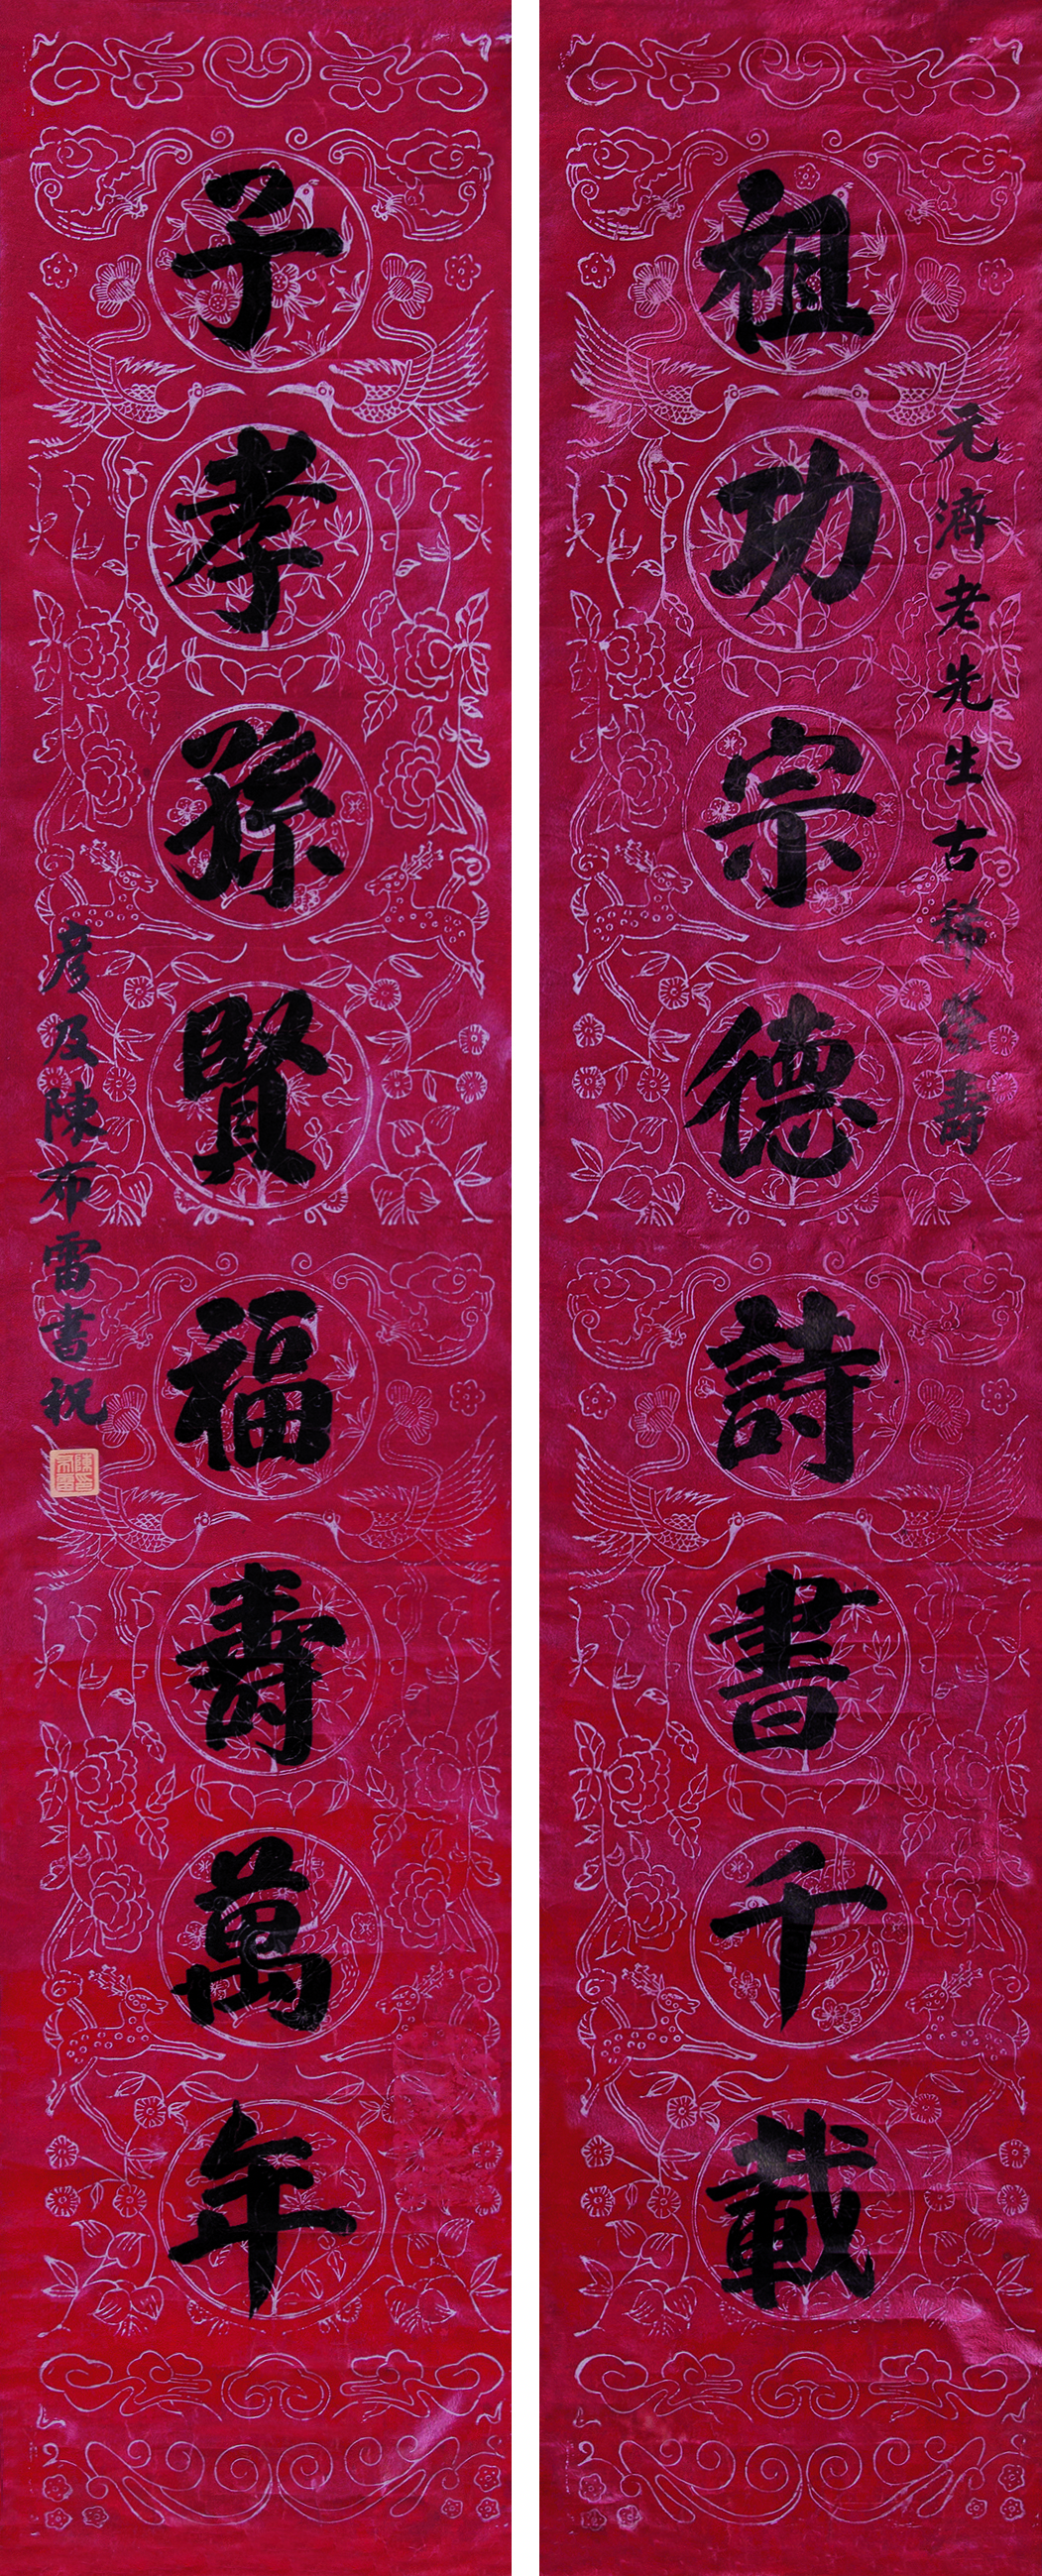 元濟老先生古稀榮壽
祖功宗德詩書千載
子孝孫賢福壽萬年
彥及陳布雷書祝